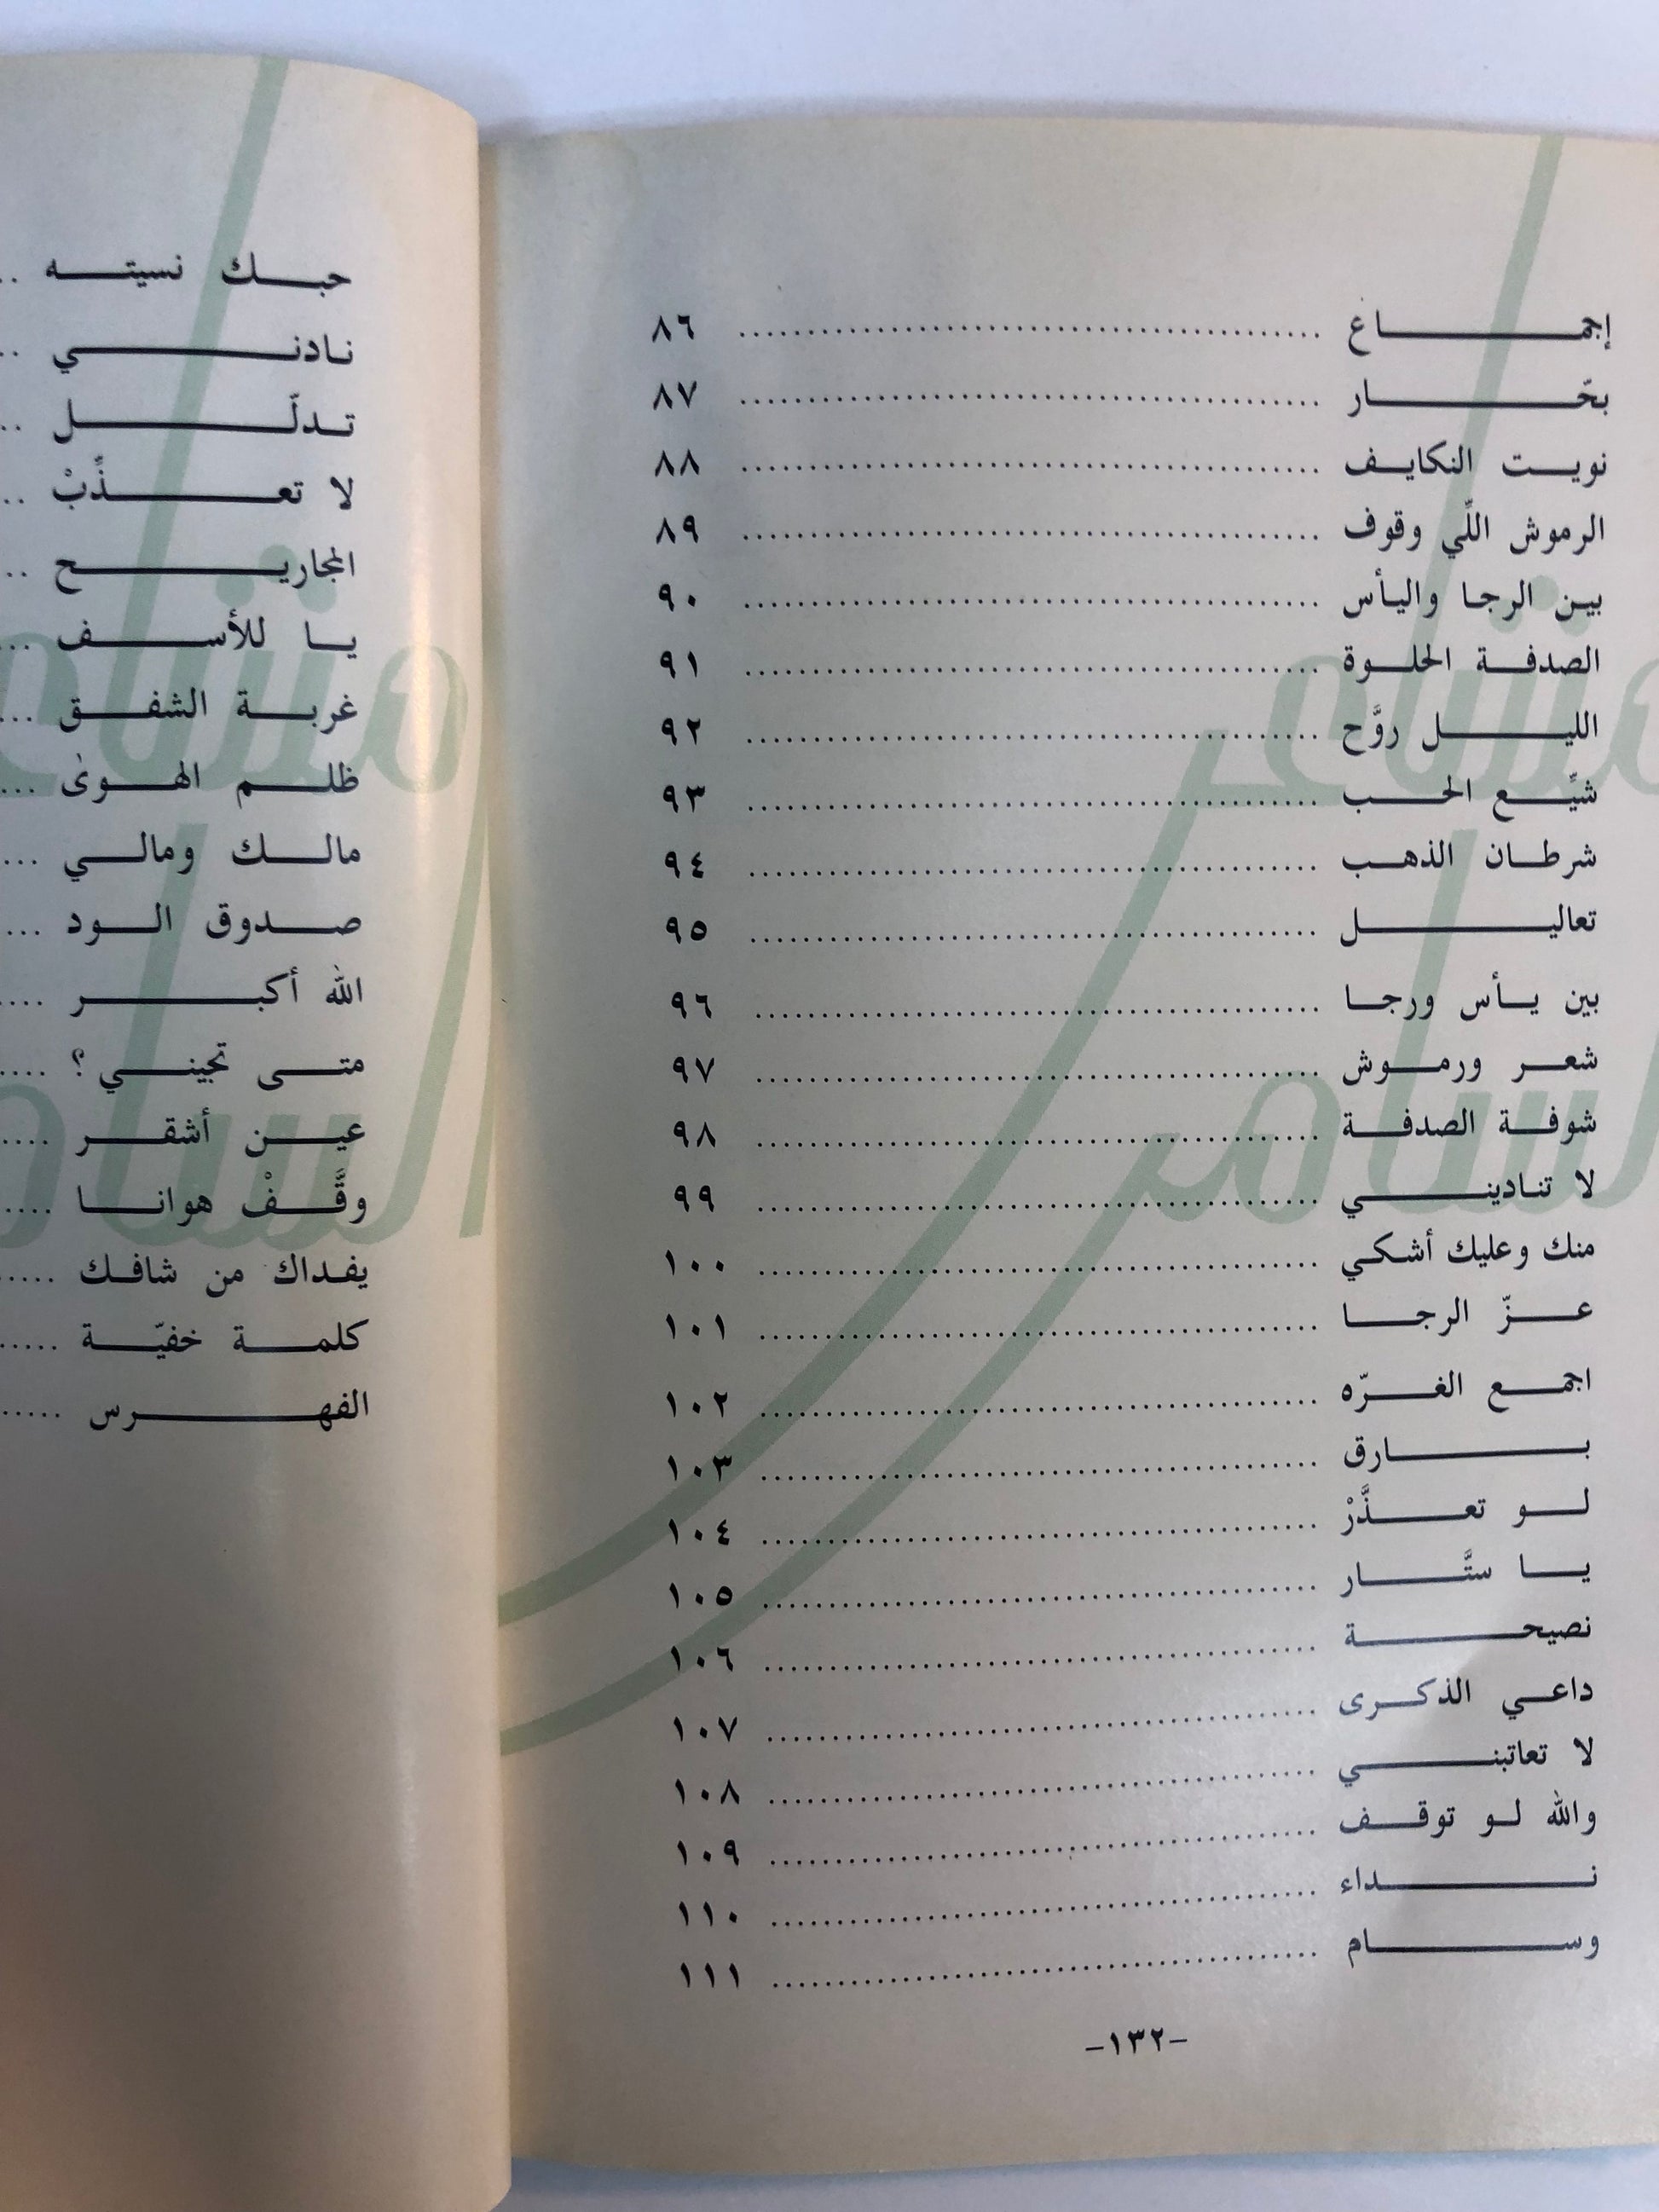 إجماع ........ ٨٦
بحّار ........ ٨٧
نويت النكايف ........ ٨٨
الرموش اللّي وقوف ........ ٨٩
بين الرجا واليأس ........ ٩٠
الصدفة الحلوة ........ ٩١
الليل روَّح ........ ٩٢
شيِّع الحب ........ ٩٣
شرطان الذهب ........ ٩٤
تعاليل ........ ٩٥
بين يأس ورجا ........ ٩٦
شعر ورموش ........ ٩٧
شوفة الصدفة ........ ٩٨
لا تناديني ........ ٩٩
منك وعليك أشكي ........ ١٠٠
عزّ الرجا ........ ١٠١
اجمع الغرّه ........ ١٠٢
بارق ........ ١٠٣
لو تعذَّرْ ........ ١٠٤
يا ستَّار ........ ١٠٥
نصيحة ........ ١٠٦
داعي الذكرى ........ ١٠٧
لا تعاتبني ........ ١٠٨
والله لو توقف ........ ١٠٩
نداء ........ ١١٠
وسام ........ ١١١
–١٣٢–
حبك نسيته ..
نادني ..
تدلّل ..
لا تعذِّبْ ..
المجاريح ..
يا للأسف ...
غربة الشفق ...
ظلم الهوى ...
مالك ومالي ...
صدوق الود ...
الله أكبر ....
متى تجيني ؟ ....
عين أشقر ....
وقَّفْ هوانا ....
يفداك من شافك .....
كلمة خفيّة .....
الفهرس .....